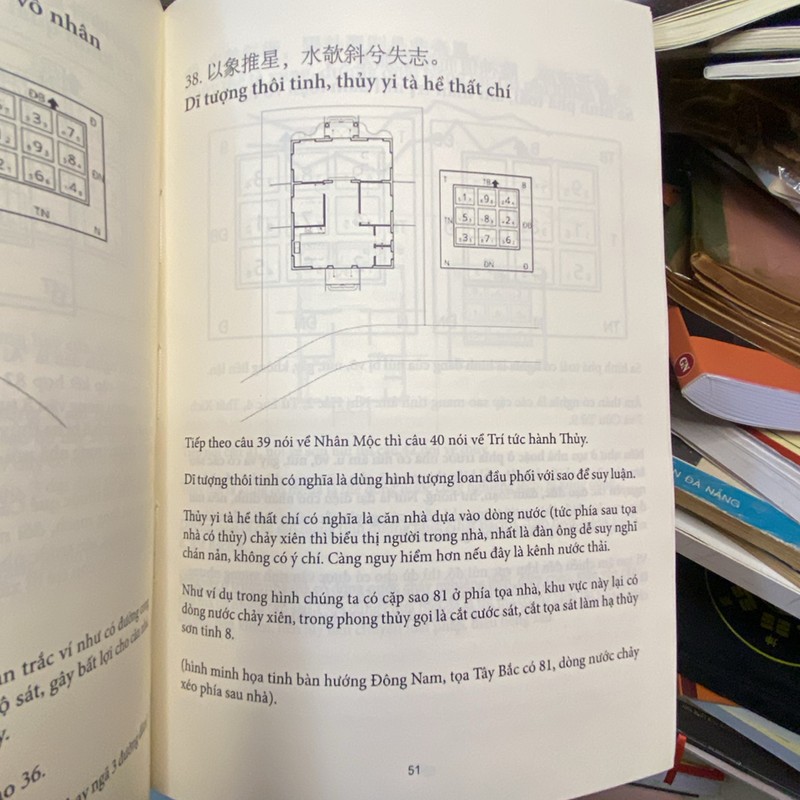 võ nhân
38. 以象推星，水欹斜兮失志。
Dĩ tượng thôi tinh, thủy yi tà hề thất chí
Tiếp theo câu 39 nói về Nhân Mộc thì câu 40 nói về Trí tức hành Thủy.
Dĩ tượng thôi tinh có nghĩa là dùng hình tượng loan đầu phối với sao để suy luận.
Thủy yi tà hề thất chí có nghĩa là căn nhà dựa vào dòng nước (tức phía sau tọa
nhà có thủy) chảy xiên thì biểu thị người trong nhà, nhất là đàn ông dễ suy nghĩ
chán nản, không có ý chí. Càng nguy hiểm hơn nếu đây là kênh nước thải.
Như ví dụ trong hình chúng ta có cặp sao 81 ở phía tọa nhà, khu vực này lại có
dòng nước chảy xiên, trong phong thủy gọi là cắt cước sát, cắt tọa sát làm hạ thủy
sơn tinh 8.
(hình minh họa tinh bàn hướng Đông Nam, tọa Tây Bắc có 81, dòng nước chảy
xéo phía sau nhà).
51
ĐB
Đ
ĐN
TN
N
T
TB
B
TN
ĐB
N
ĐN
Đ
n trắc ví như có đường cong
ộ sát, gây bất lợi cho căn nhà
y.
ao 36.
ay ngã 3 đường đâm
ĐÀ NẴNG